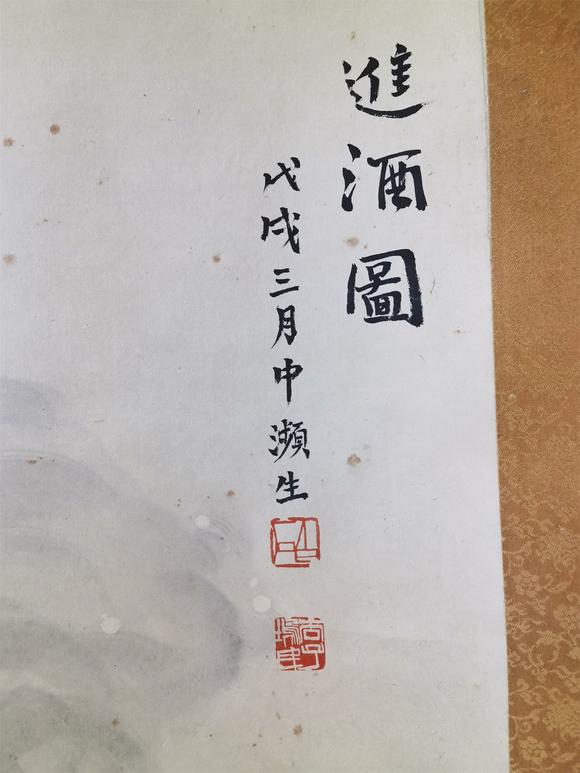 進酒圖
戊戌三月中瀕生